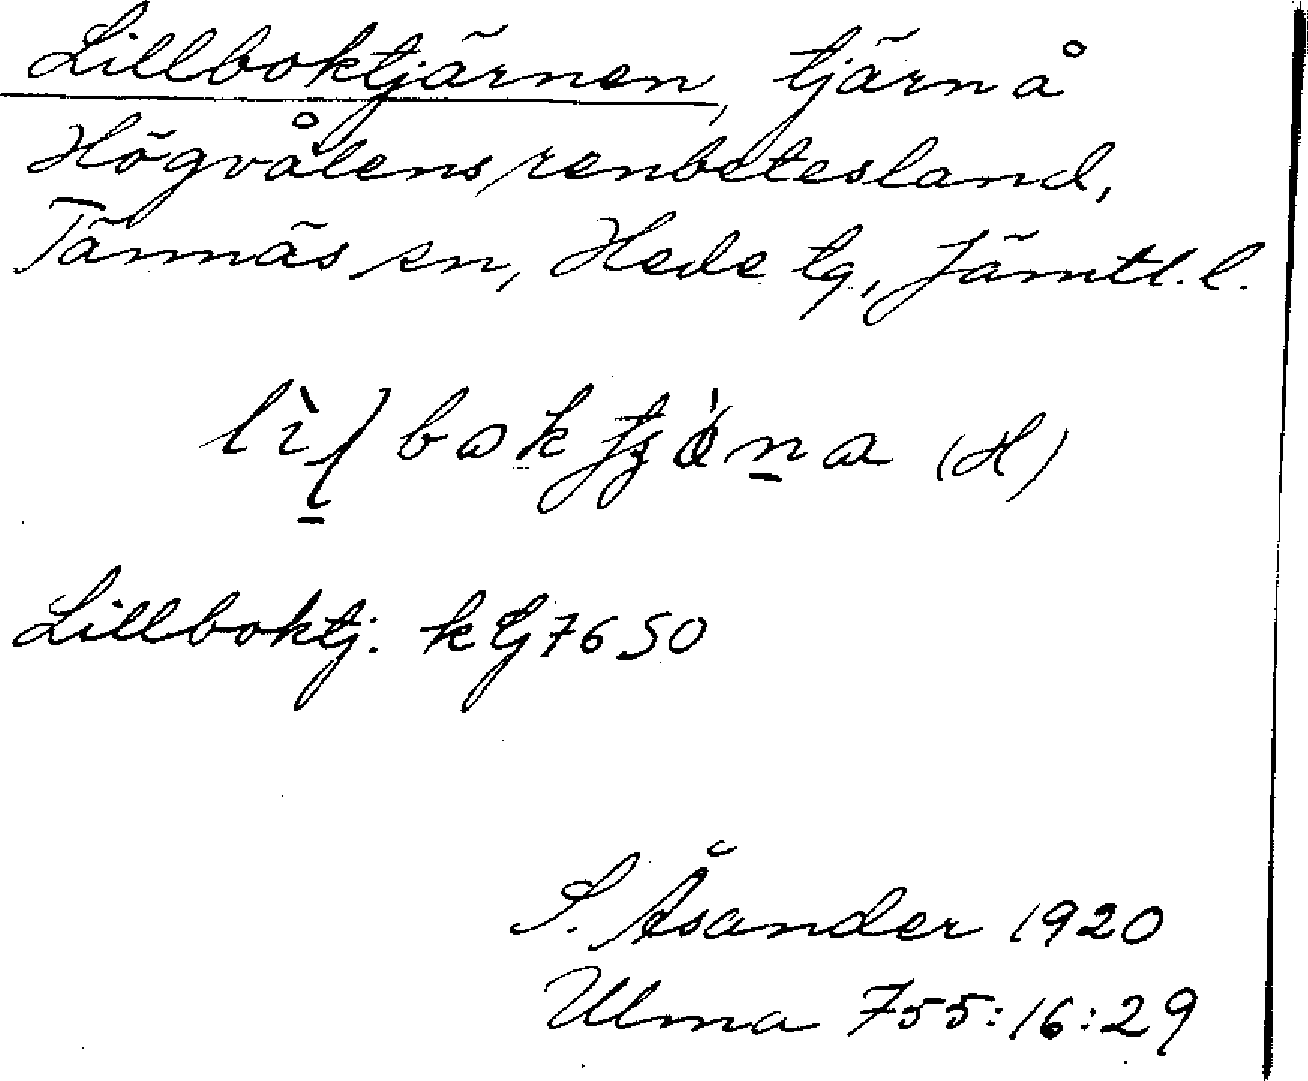 Lillboktjärnen, tjärn å
Högvålens renbetesland,
Tännäs sn, Hede tg, Jämtl. l.
(H)
Lillboktj. k Gj 7650
S. Åsander 1920
Ulma 755:16:29